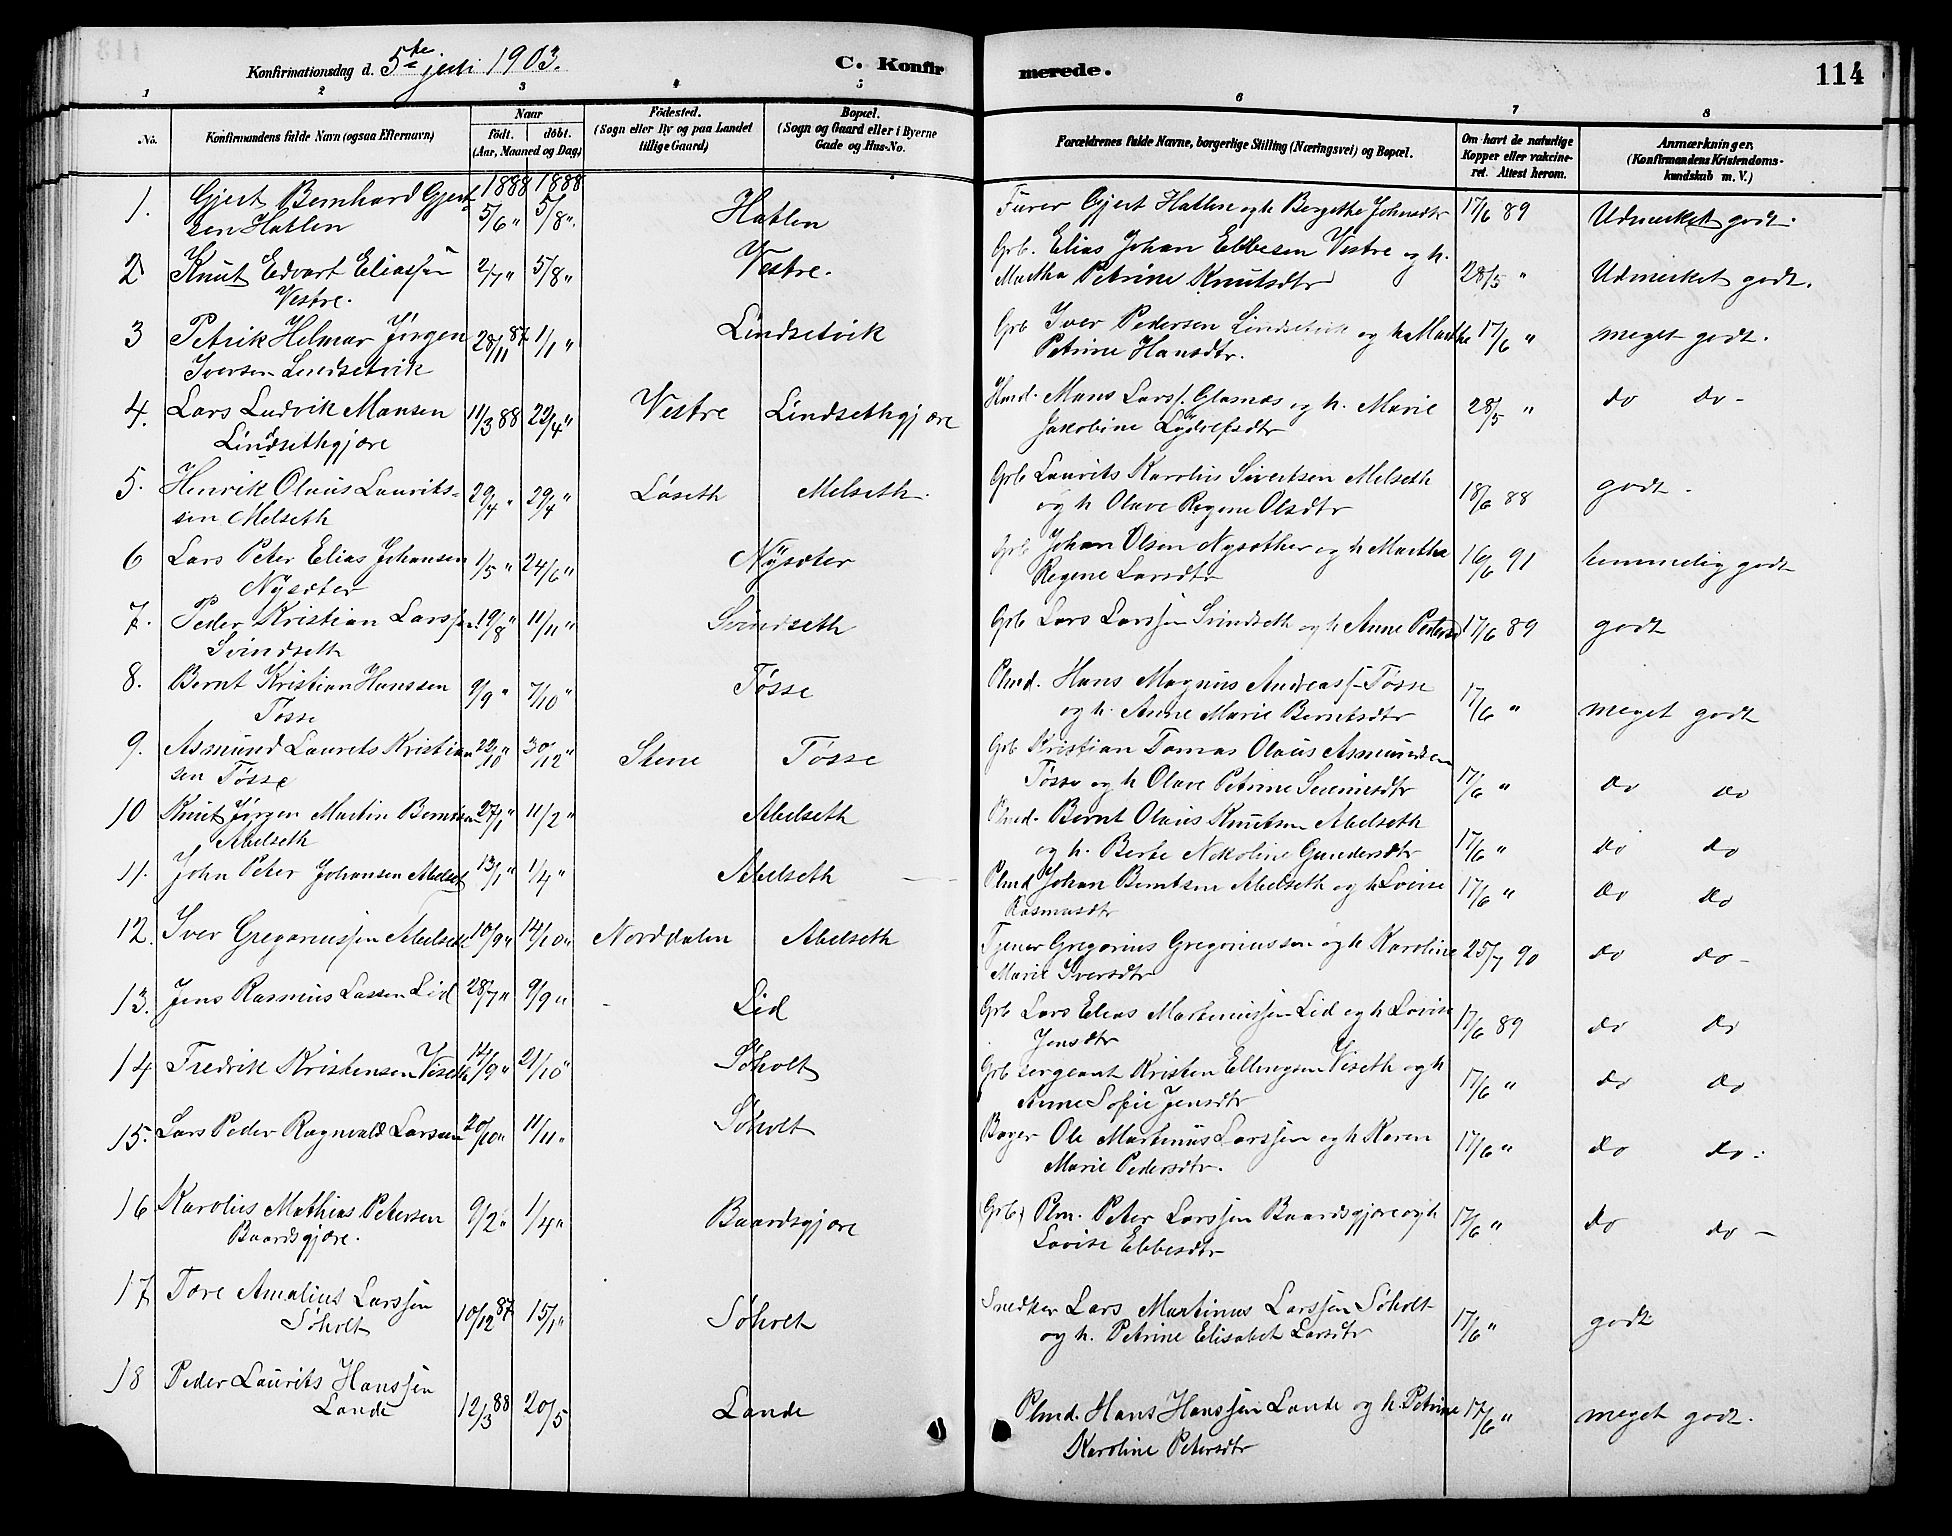 Konfirmationsdag d. 5te juli 1903.
C. Konfirmerede.
114
1 2 3 4 5 6 7 8
No.
Konfirmandens fulde Navn (ogsaa Efternavn)
Naar
født. døbt.
(Aar, Maaned og Dag)
Födested.
(Sogn eller By og paa Landet
tillige Gaard)
Bopæl.
(Sogn og Gaard eller i Byerne
Gade og Hus-No.
Forældrenes fulde Navne, borgerlige Stilling (Næringsvei) og Bopæl.
Om havt de naturlige
Kopper eller vakcine-
ret. Attest herom.
Anmærkninger.
(Konfirmandens Kristendoms-
kundskab m. V.)
1888 1888
1. Gjert Bernhard Gjert- 5/6 " 5/8 " Hatlen Furer Gjert Hatlen og h Bergethe Johnsdtr 17/6 89 Udmerket godt.
sen Hatlen
2 Knut Edvart Eliassen 2/7 " 5/8 " Vestre. Grb. Elias Johan Ebbesen Vestre og h. 28/5 " Udmerket godt.
Vestre. Martha Petrine Knutsdtr
3 Petrik Helmar Jørgen 28/11 87 1/1 " Lindsetvik Grb Iver Pedersen Lindsetvik og h Marthe 17/6 " meget godt.
Iversen Lindsetvik Petrine Hansdtr.
4. Lars Ludvik Mansen 11/3 88 22/4 " Vestre Lindsethgjøre Hmd. Mans Larss. Glamas og h. Marie 28/5 " do do -
Lindsethgjøre Jakobine Lydolfsdtr
5. Henrik Olaus Laurits- 29/4 " 29/4 " Løseth Melseth. Grb Laurits Karolius Sivertsen Melseth 18/6 88 godt.
sen Melseth og h Olave Regene Olsdtr
6 Lars Peter Elias Johansen 1/5 " 24/6 " Nysæter Grb Johan Olsen Nysæther og h Marthe 16/6 91 temmelig godt
Nysæter Regene Larsdtr
7. Peder Kristian Larssen 19/8 " 11/11 " Svindseth Grb Lars Larssen Svindseth og h Anne Pedersd 17/6 89 godt
Svindseth
8. Bernt Kristian Hanssen 9/9 " 7/10 " Tøsse Plmd. Hans Magnus Andreass. Tøsse 17/6 " meget godt
Tøsse og h. Anne Marie Berntsdtr
9. Asmund Laurits Kristian 22/10 " 30/12 " Stene Tøsse Grb Kristian Tomas Olaus Asmundsen
sen Tøsse Tøsse og h Olave Petrine Severinsdtr 17/6 " do do
10 Knut Jørgen Martin Berntsen 27/1 " 11/2 " Abelseth Plmd. Bernt Olaus Knutsen Abelseth
Abelseth og h. Berte Nekoline Gundersdtr 17/6 " do do
11. John Peter Johansen Abelset 13/1 " 1/4 " Abelseth Plmd Johan Berntsen Abelseth og h Lovise 17/6 " do do
Rasmusdtr
12. Iver Gregoriussen Abelseth 10/9 " 14/10 " Norddalen Abelseth Tjener Gregorius Gregoriussen og h Karoline 25/7 90 do do -
Marie Iversdtr
13. Jens Rasmus Larsen Lid 28/7 " 9/9 " Lid Grb Lars Elias Martinussen Lid og h Lovise 17/6 89 do do
Jensdtr
14 Fredrik Kristensen Viseth 14/9 " 21/10 " Søholt Grb sergeant Kristen Ellingsen Viseth og h 17/6 " do do
Anne Sofie Jensdtr
15. Lars Peder Ragnvald Larssen 20/10 " 11/11 " Søholt Bager Ole Martinus Larssen og h Karen 17/6 " do do -
Marie Pedersdtr.
16 Karolius Mathias Petersen 9/2 " 1/4 " Baardsgjøre (Grb) Plm. Peter Larssen Baardsgjøre og h 17/6 " do do -
Baardsgjøre. Lovise Ebbesdtr
17 Tore Amalius Larssen 10/12 87 15/1 " Søholt Snedker Lars Martinus Larssen Søholt 17/6 " godt
Søholt og h. Petrine Elisabet Larsdtr
18 Peder Laurits Hanssen 12/3 88 20/5 Lande Plmd. Hans Hanssen Lande og h. Petrine 17/6 " meget godt.
Lande Karoline Petersdtr